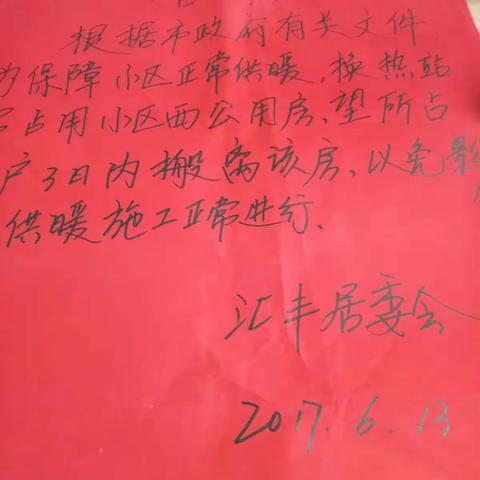 根据市政府有关文件
为保障小区正常供暖,换热站
占用小区西公用房、望所占
户3日内搬离该房、以免影
供暖施工正常进行.
汇丰居委会
2017.6.13